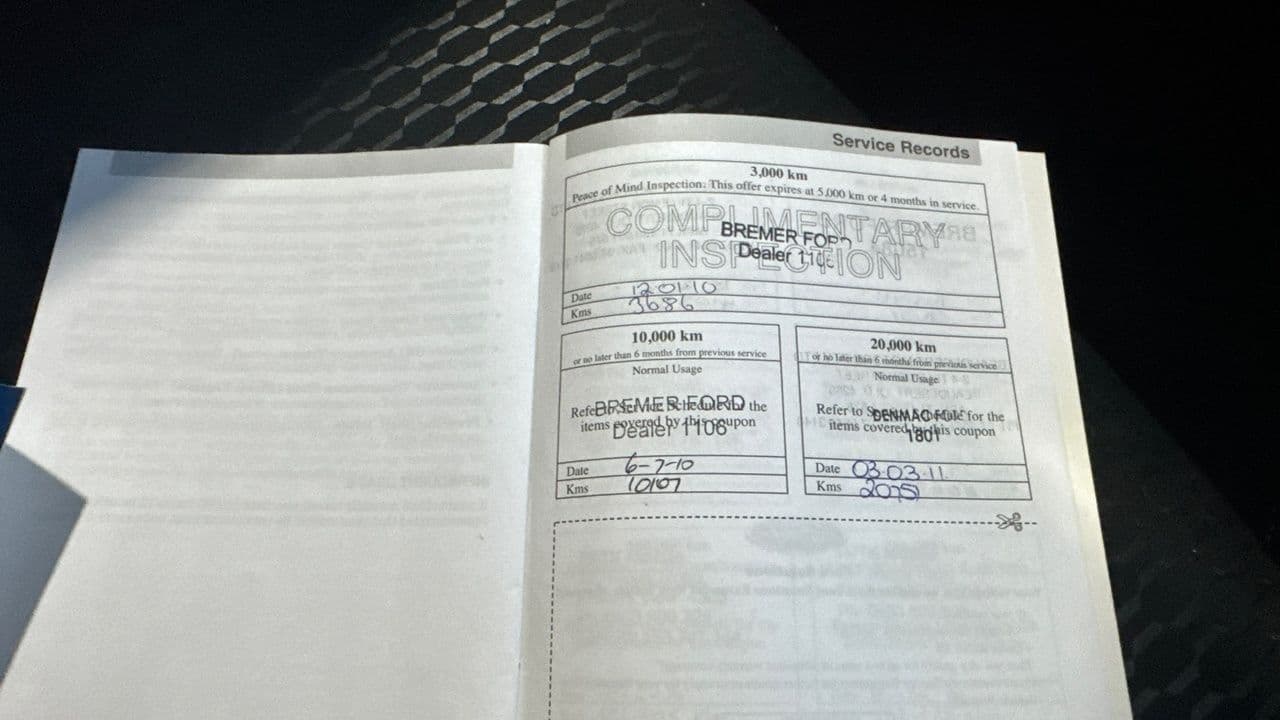 Service Records
3,000 km
Peace of Mind Inspection. This offer expires at 5,000 km or 4 months in service.
COMPLIMENTARY
BREMER FORD
INSPECTION
Dealer
Date 12.01.10
Kms 3686
10,000 km
or no later than 6 months from previous service
Normal Usage
Refer to Service Schedule for the
BREMER FORD
items covered by this coupon
Dealer 1106
Date 6-7-10
Kms 10107
20,000 km
or no later than 6 months from previous service
Normal Usage
Refer to for the
DENMAC FORD
items covered by this coupon
1801
Date 03.03.11
Kms